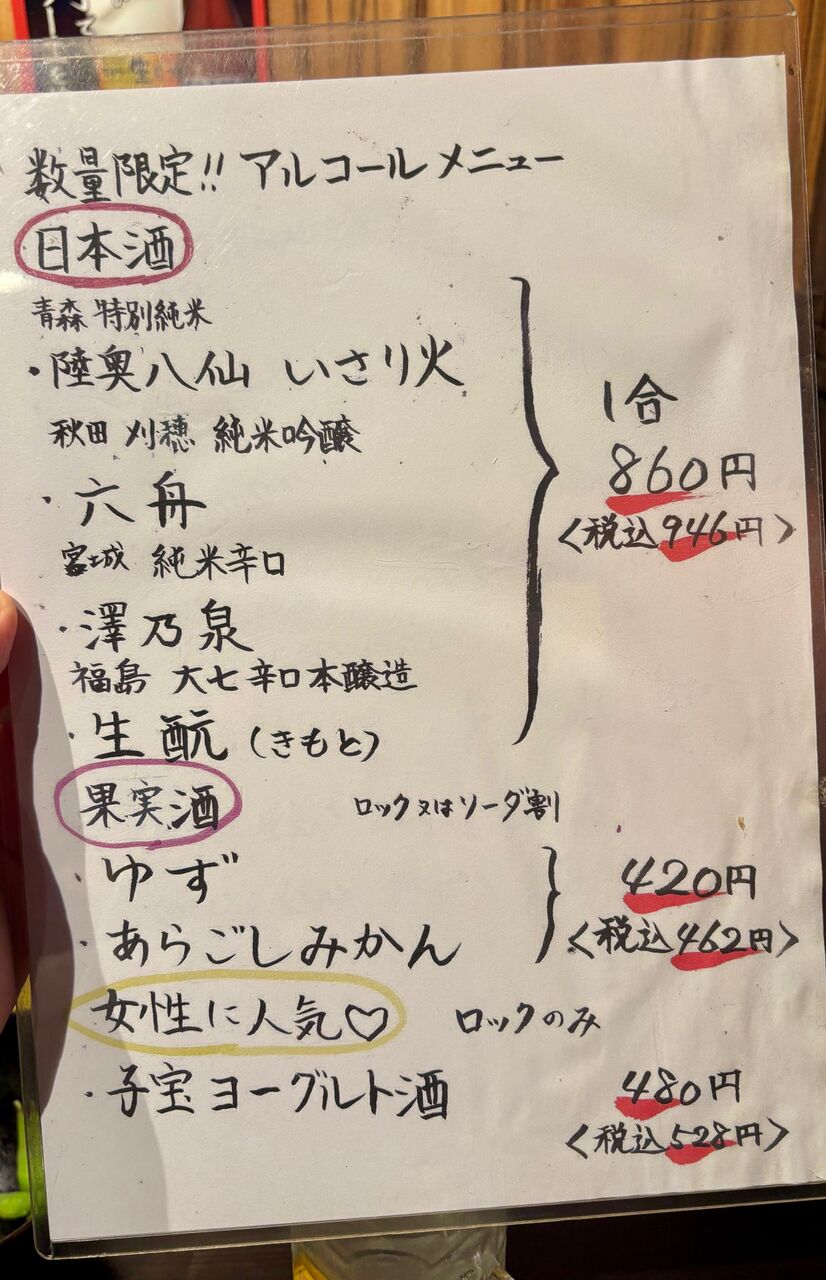 数量限定!! アルコールメニュー
日本酒
青森 特別純米
・陸奥八仙 いさり火
秋田 刈穂 純米吟醸
・六舟
宮城 純米辛口
・澤乃泉
福島 大七辛口本醸造
・生酛(きもと)
1合
860円
<税込946円>
果実酒 ロック又はソーダ割
・ゆず
・あらごしみかん
420円
<税込462円>
女性に人気♡ ロックのみ
・子宝ヨーグルト酒 480円
<税込528円>